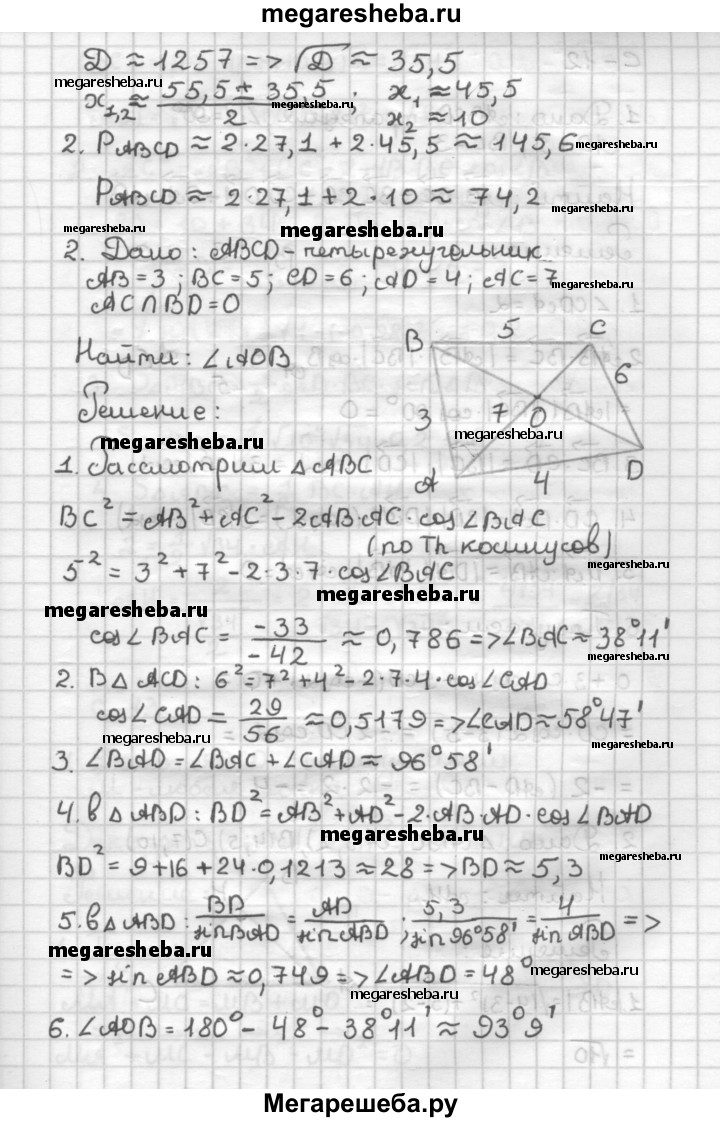 megaresheba.ru
D ≈ 1257 => √D ≈ 35,5
megaresheba.ru
x₁,₂ ≈ (55,5 ± 35,5)/2 ; x₁ ≈ 45,5
megaresheba.ru
x₂ ≈ 10
2. PABCD ≈ 2·27,1 + 2·45,5 ≈ 145,6
megaresheba.ru
PABCD ≈ 2·27,1 + 2·10 ≈ 74,2
megaresheba.ru
megaresheba.ru
2. Дано: ABCD - четырехугольник
AB = 3; BC = 5; CD = 6; AD = 4; AC = 7
megaresheba.ru
AC ∩ BD = O
Найти: ∠AOB
Решение:
B 5 C
6
3 7 O
megaresheba.ru
A 4 D
megaresheba.ru
1. Рассмотрим △ABC
BC² = AB² + AC² - 2AB·AC·cos∠BAC
(по Th косинусов)
5² = 3² + 7² - 2·3·7·cos∠BAC
megaresheba.ru
megaresheba.ru
cos∠BAC = -33/-42 ≈ 0,786 => ∠BAC ≈ 38°11'
2. В △ ACD: 6² = 7² + 4² - 2·7·4·cos∠CAD
cos∠CAD = 29/56 ≈ 0,5179 => ∠CAD ≈ 58°47'
megaresheba.ru
megaresheba.ru
3. ∠BAD = ∠BAC + ∠CAD ≈ 96°58'
4. в △ ABD: BD² = AB² + AD² - 2·AB·AD·cos∠BAD
megaresheba.ru
BD² = 9 + 16 + 24·0,1213 ≈ 28 => BD ≈ 5,3
megaresheba.ru
5. в △ ABD: BD/sinBAD = AD/sinABD ; 5,3/sin96°58' = 4/sinABD =>
megaresheba.ru
=> sinABD ≈ 0,749 => ∠ABD = 48°
megaresheba.ru
megaresheba.ru
6. ∠AOB = 180° - 48° - 38°11' ≈ 93°9'
Мегарешеба.ру